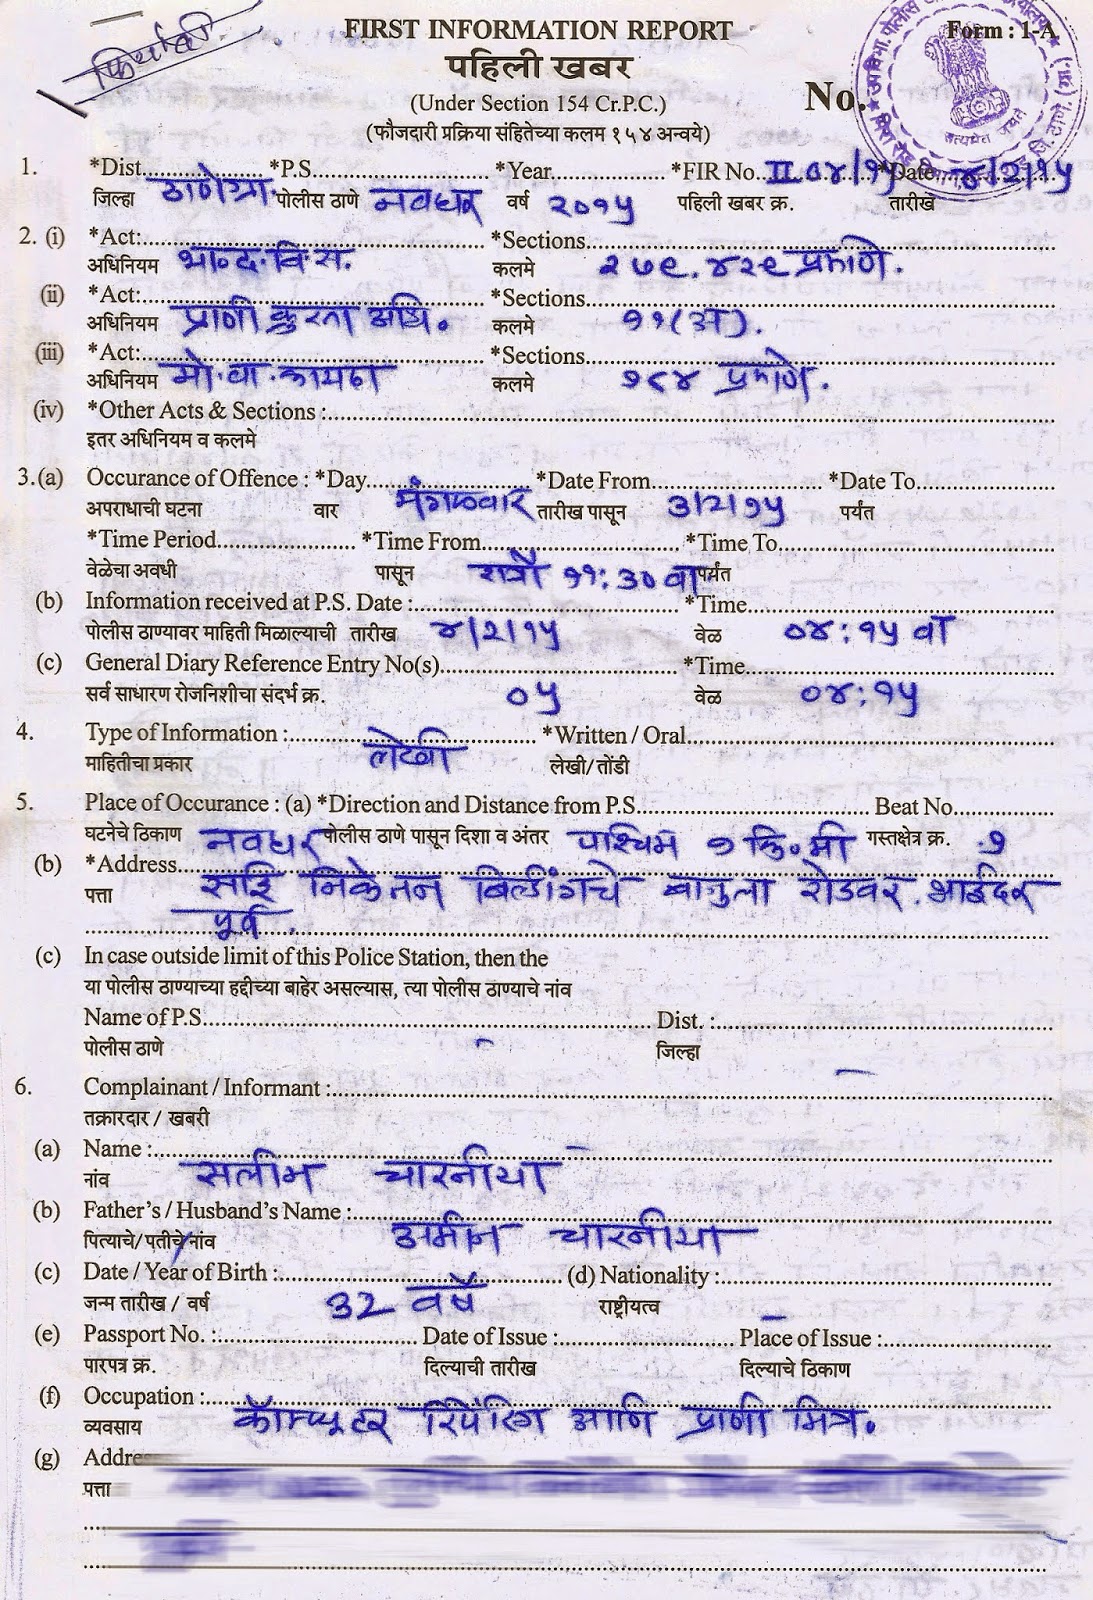 फिर्यादी
FIRST INFORMATION REPORT
Form : 1-A
पहिली खबर
(Under Section 154 Cr.P.C.)
No.
(फौजदारी प्रक्रिया संहितेच्या कलम १५४ अन्वये)
1. *Dist. *P.S. *Year *FIR No. II 04/१५ *Date ४/2/१५
जिल्हा ठाणे ग्रा. पोलीस ठाणे नवघर वर्ष २०१५ पहिली खबर क्र. तारीख
2. (i) *Act: *Sections
अधिनियम भा.द.वि.स. कलमे २७९. ४२९ प्रमाणे.
(ii) *Act: *Sections
अधिनियम प्राणी क्रुरता अधि. कलमे ११(अ).
(iii) *Act: *Sections
अधिनियम मो.वा.कायदा कलमे १८४ प्रमाणे.
(iv) *Other Acts & Sections :
इतर अधिनियम व कलमे
3.(a) Occurance of Offence : *Day *Date From *Date To
अपराधाची घटना वार मंगळवार तारीख पासून 3/2/१५ पर्यंत
*Time Period *Time From *Time To
वेळेचा अवधी पासून रात्रौ ११:३० वा पर्यंत
(b) Information received at P.S. Date : *Time
पोलीस ठाण्यावर माहिती मिळाल्याची तारीख ४/2/१५ वेळ ०४:१५ वा
(c) General Diary Reference Entry No(s) *Time
सर्व साधारण रोजनिशीचा संदर्भ क्र. ०५ वेळ ०४:१५
4. Type of Information : *Written / Oral
माहितीचा प्रकार लेखी लेखी/तोंडी
5. Place of Occurance : (a) *Direction and Distance from P.S. Beat No.
घटनेचे ठिकाण नवघर पोलीस ठाणे पासून दिशा व अंतर पश्चिम १ कि.मी गस्तक्षेत्र क्र. १
(b) *Address
पत्ता साई निकेतन बिल्डींगचे बाजुला रोडवर. भाईंदर
पूर्व.
(c) In case outside limit of this Police Station, then the
या पोलीस ठाण्याच्या हद्दीच्या बाहेर असल्यास, त्या पोलीस ठाण्याचे नांव
Name of P.S. Dist. :
पोलीस ठाणे जिल्हा
6. Complainant / Informant :
तक्रारदार / खबरी
(a) Name :
नांव सलीम चारनीया
(b) Father's / Husband's Name :
पित्याचे/पतीचे नांव अमीन चारनीया
(c) Date / Year of Birth : (d) Nationality :
जन्म तारीख / वर्ष 32 वर्षे राष्ट्रीयत्व
(e) Passport No. : Date of Issue : Place of Issue :
पारपत्र क्र. दिल्याची तारीख दिल्याचे ठिकाण
(f) Occupation :
व्यवसाय कॉम्प्युटर रिपेरिंग आणि प्राणी मित्र.
(g) Address
पत्ता